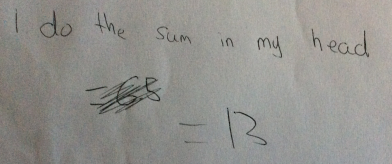 I do the sum in my head
= 65
= 13